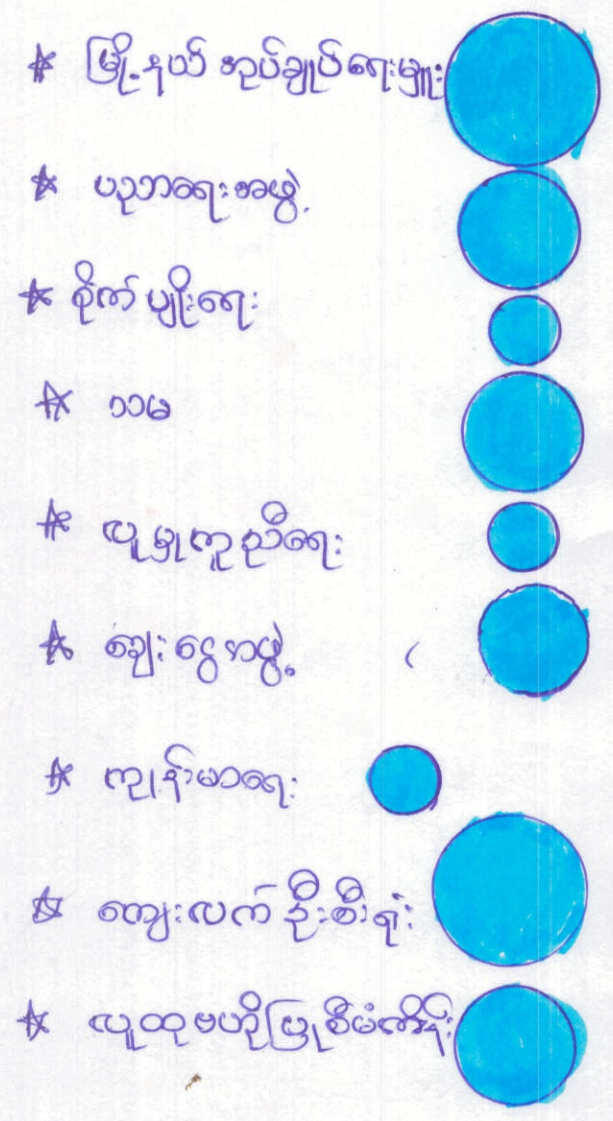 ★ မြို့နယ် အုပ်ချုပ်ရေးမှူး
★ ပညာရေးအဖွဲ့
★ စိုက်ပျိုးရေး
★ သမ
★ လူမှုကူညီရေး
★ ချေးငွေအဖွဲ့
★ ကျန်းမာရေး
★ ကျေးလက်ဦးစီးရုံး
★ လူထုဗဟိုပြုစီမံကိန်း